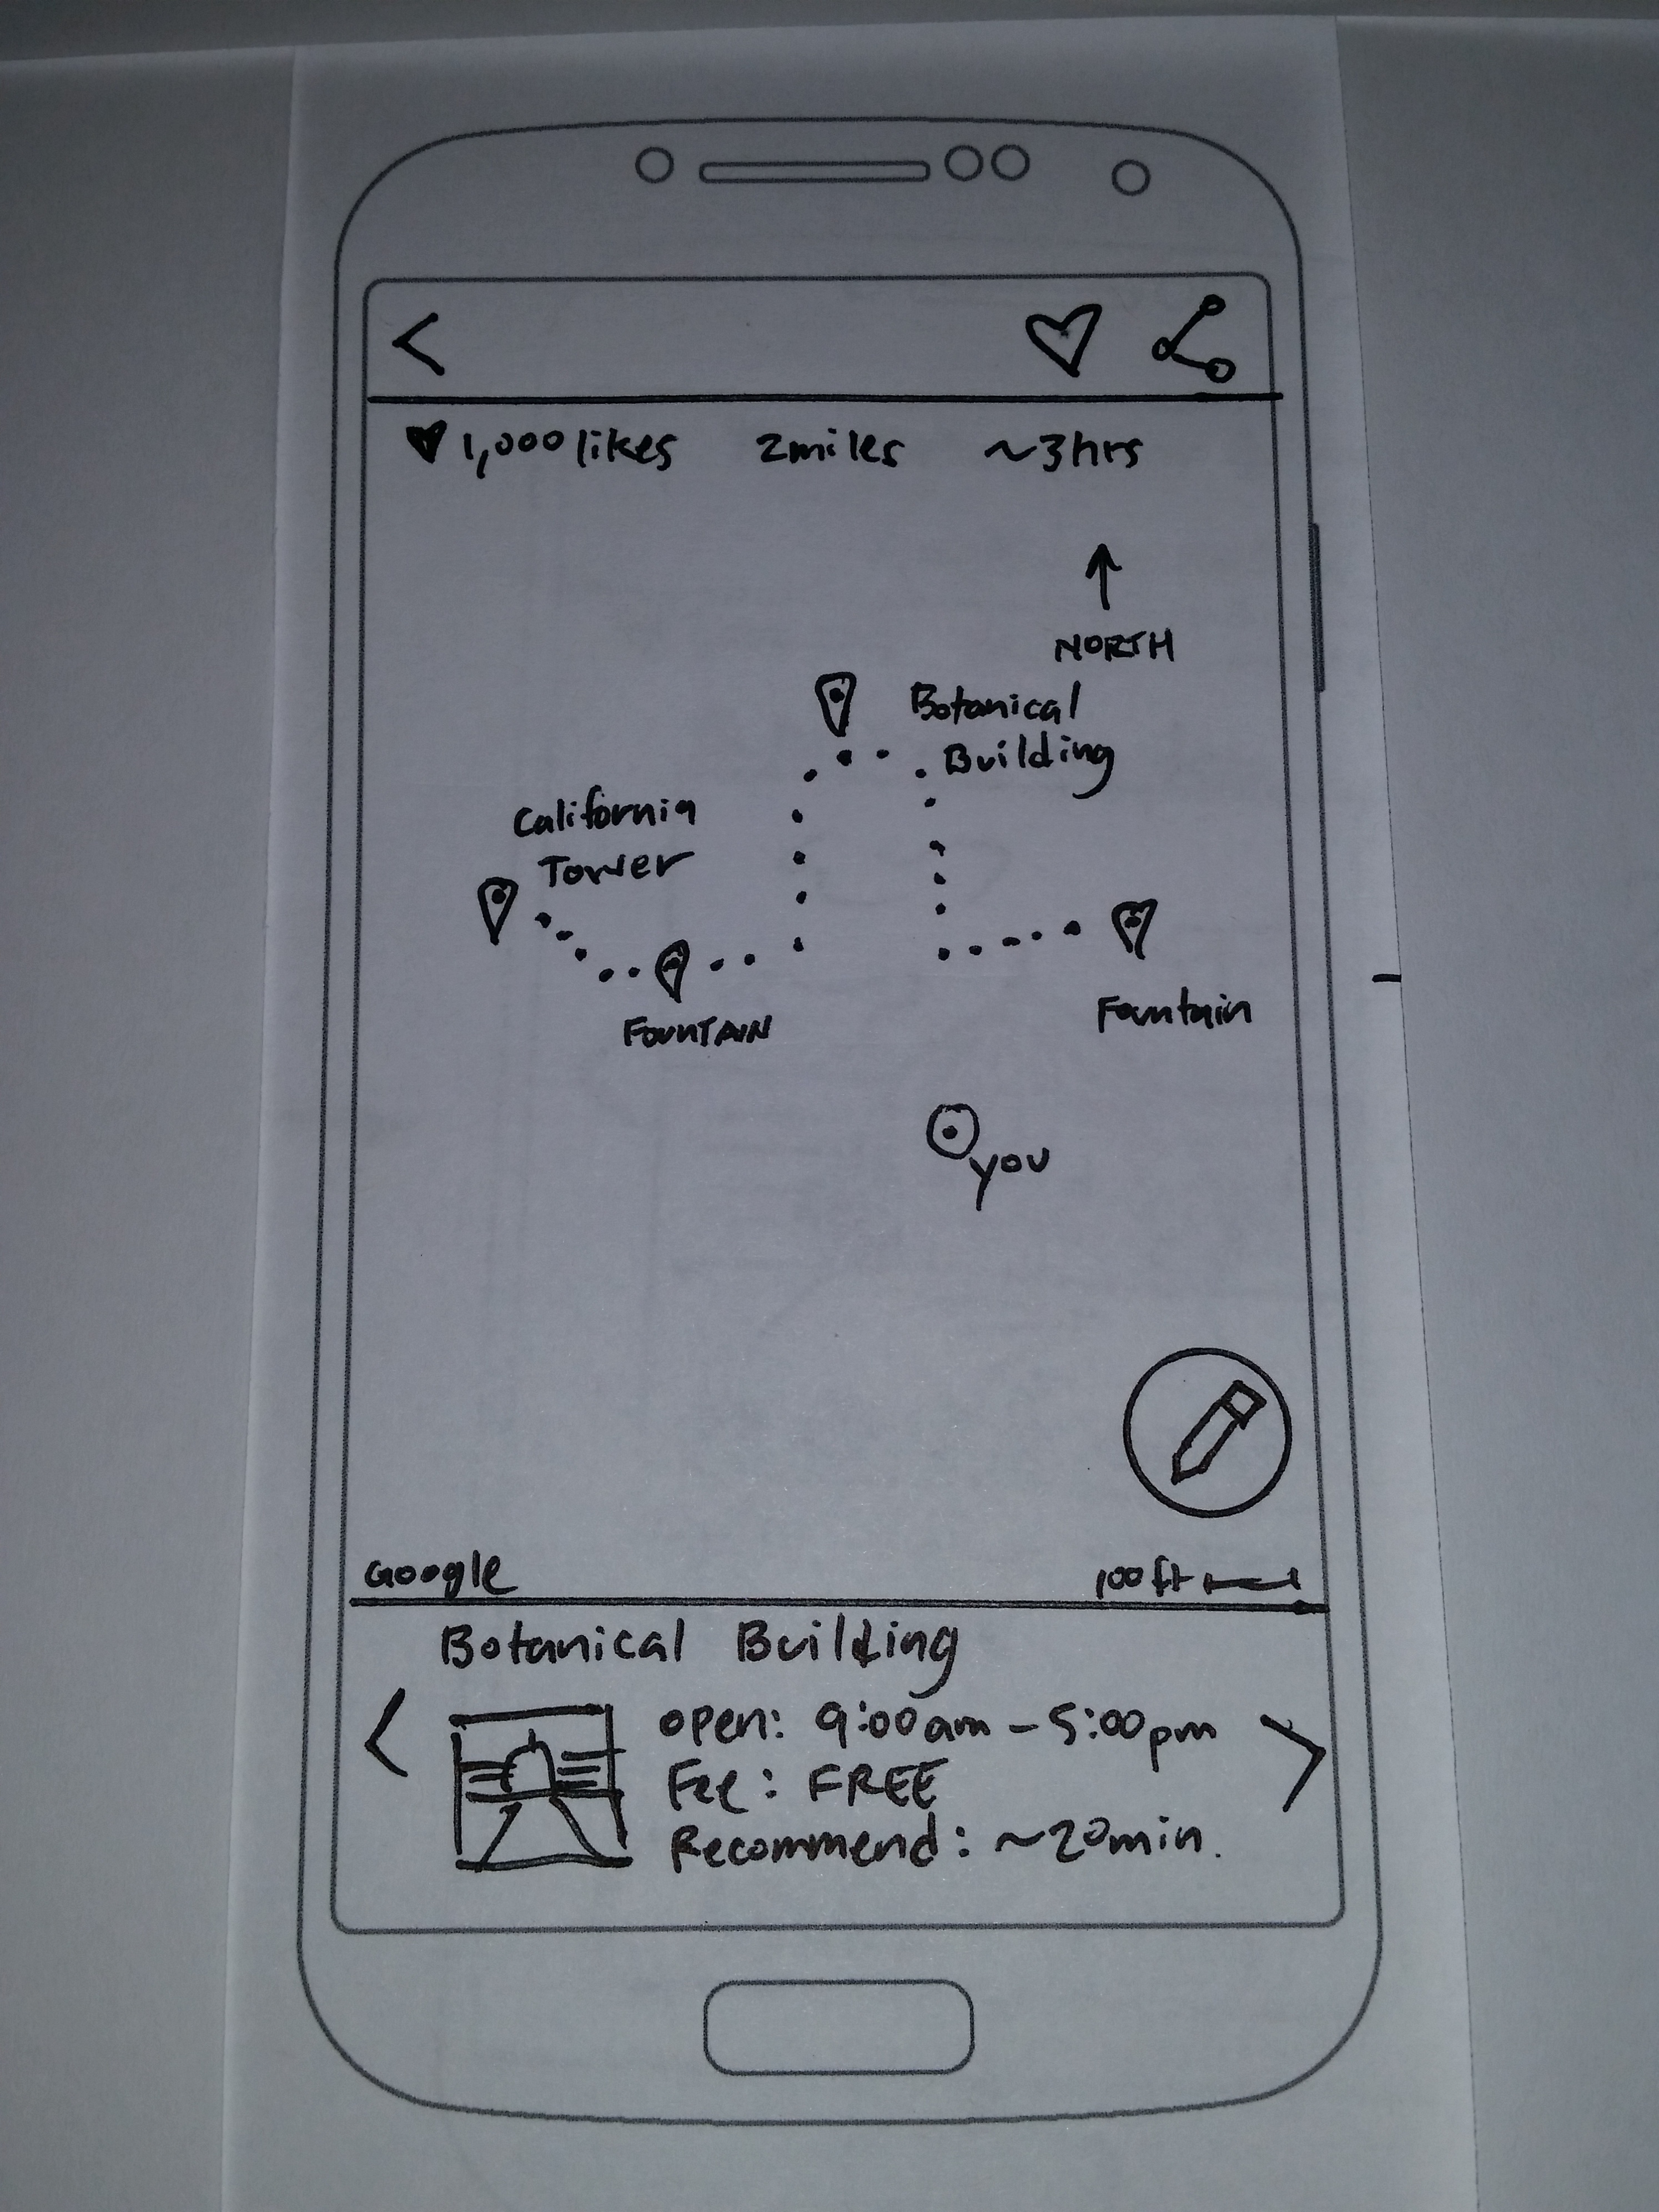 1,000 likes 2miles ~3hrs
NORTH
Botanical
Building
California
Tower
FOUNTAIN
Fountain
you
Google
100ft
Botanical Building
open: 9:00am - 5:00pm
Fee: FREE
Recommend: ~20min.